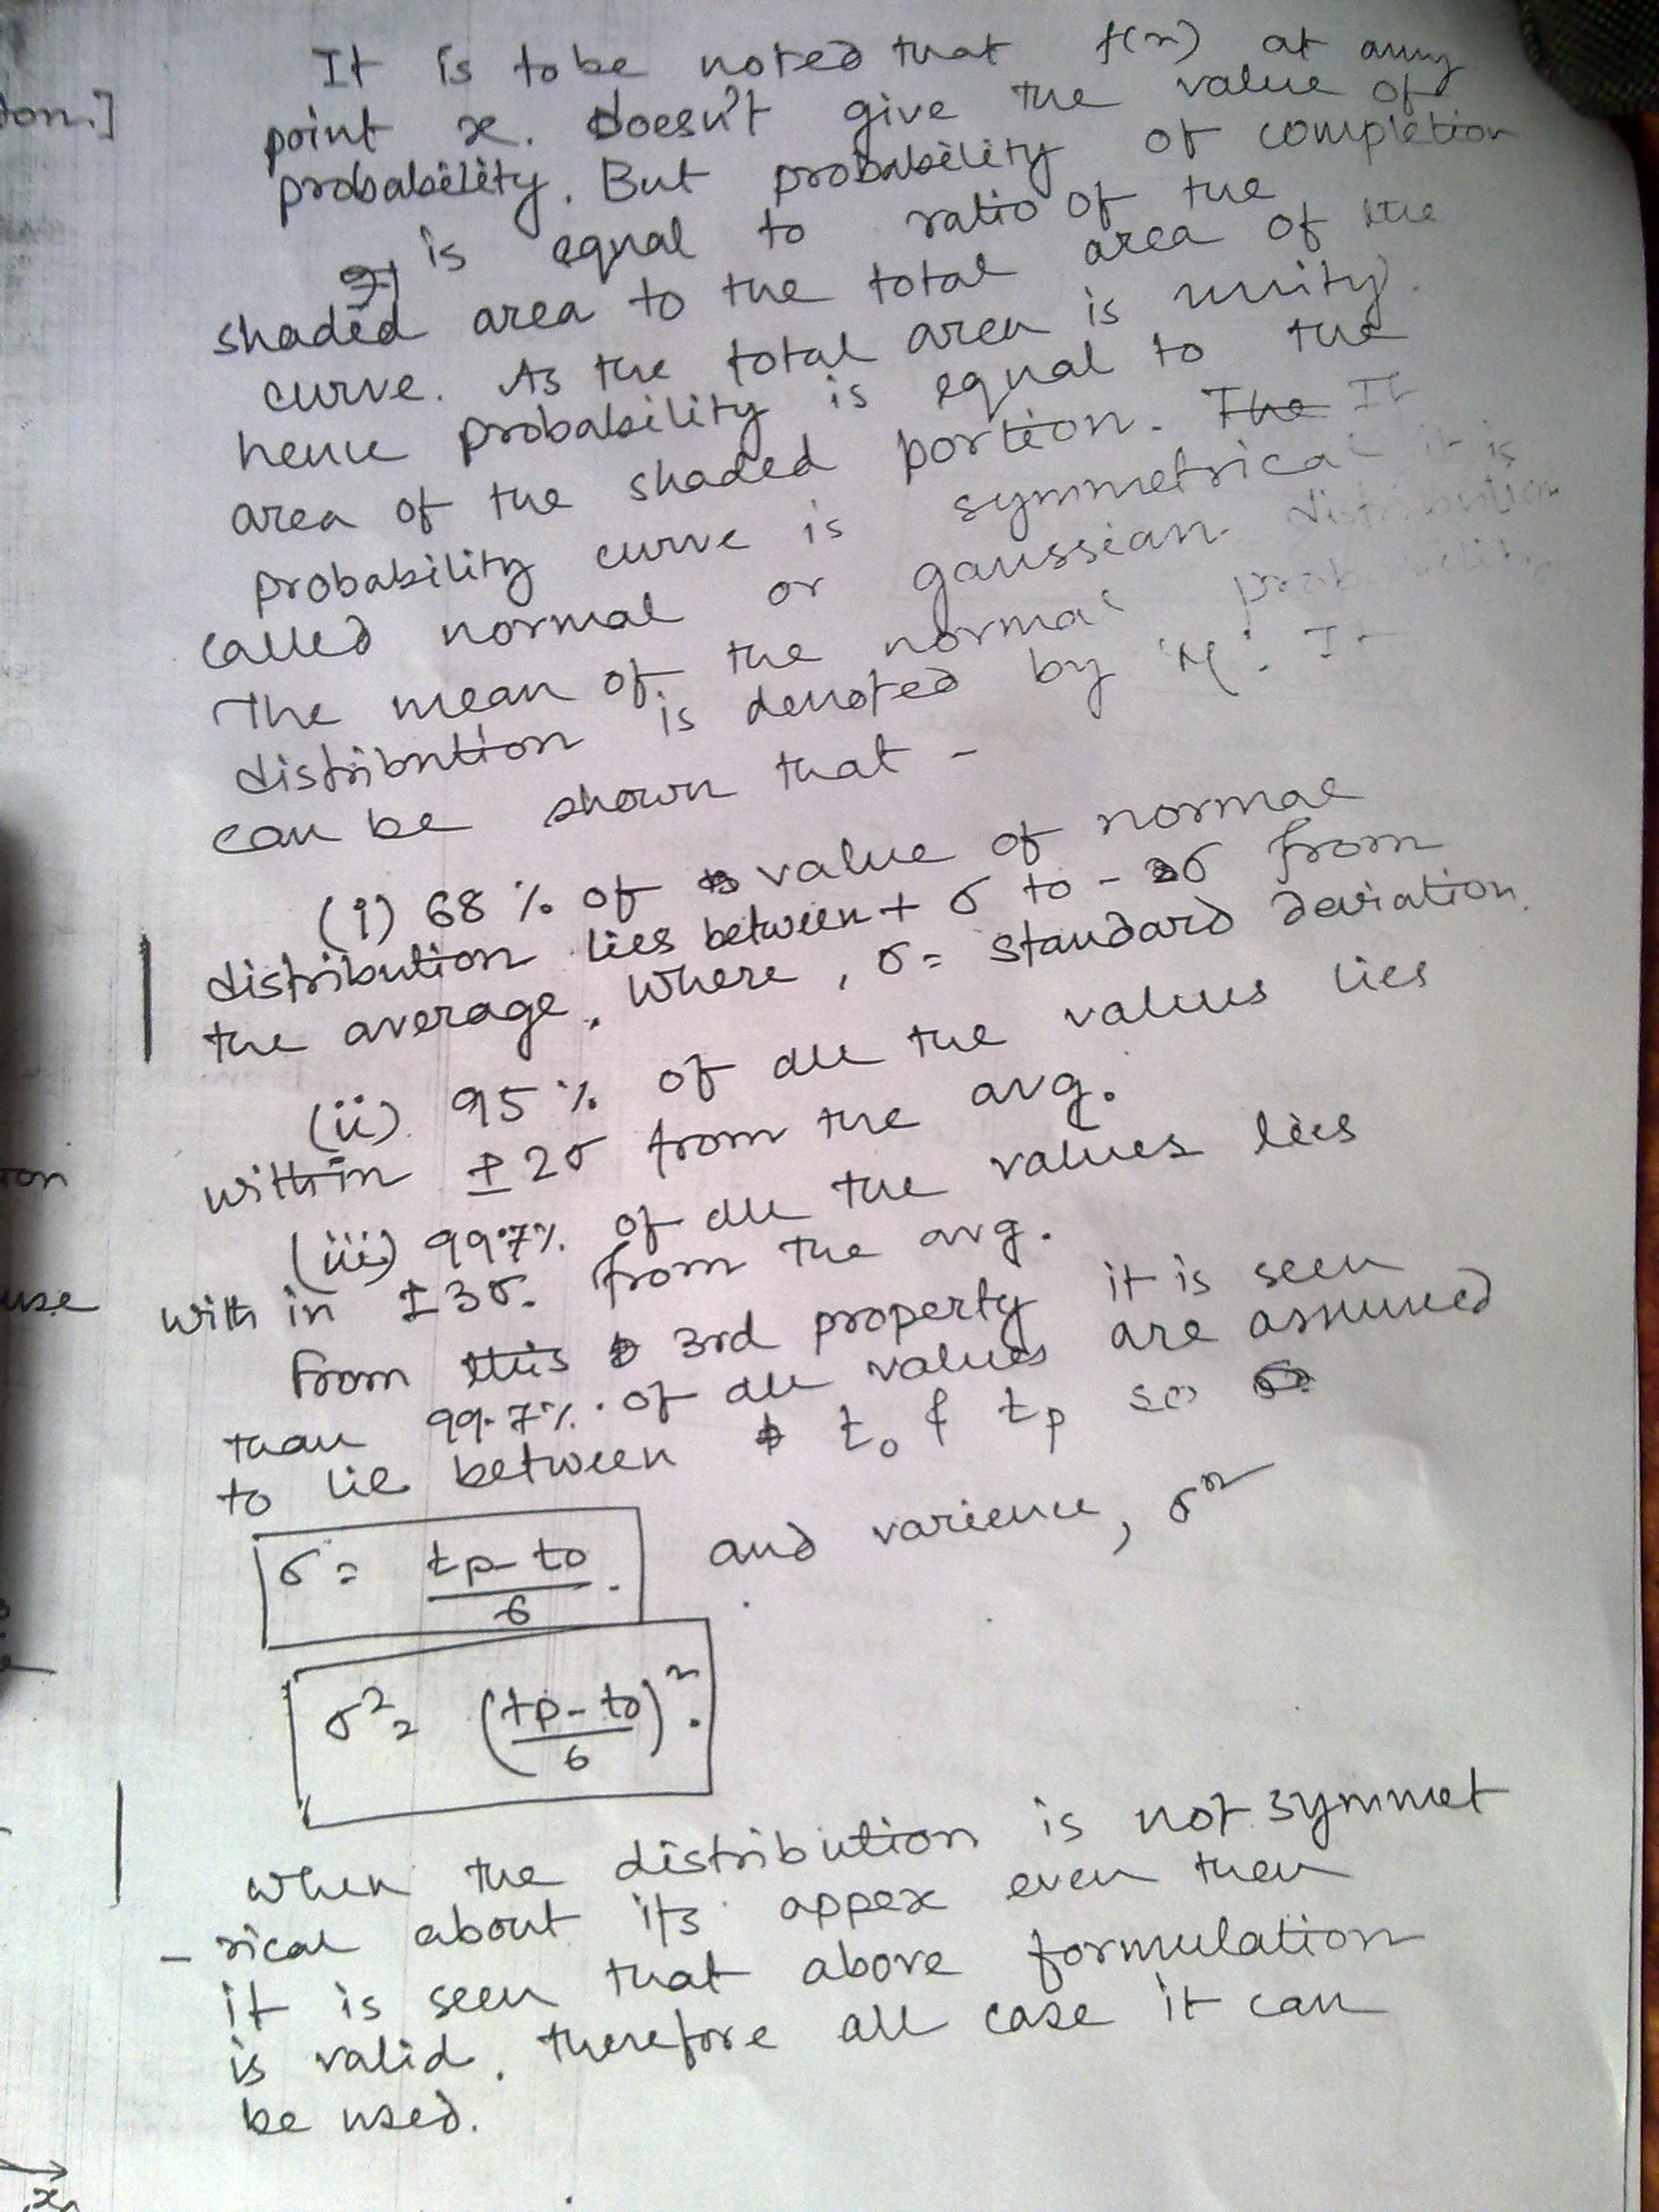 It is to be noted that f(x) at any
point x. doesn't give the value of
probability. But probability of completion
is equal to ratio of the
shaded area to the total area of the
curve. As the total area is unity.
hence probability is equal to the
area of the shaded portion. The It
probability curve is symmetrical it is
called normal or gaussian distribution
The mean of the normal probability
distribution is denoted by 'M'. It
can be shown that -
(i) 68 % of value of normal
distribution lies between + σ to - σ from
the average. Where, σ = standard deviation.
(ii) 95 % of all the values lies
within ± 2σ from the avg.
(iii) 99.7% of all the values lies
with in ± 3σ. from the avg.
From this 3rd property it is seen
than 99.7% of all values are assumed
to lie between to & tp so
σ = tp - to / 6 . and varience, σ²
σ² = (tp - to / 6)².
When the distribution is not symmet
- rical about its appex even then
it is seen that above formulation
is valid. therefore all case it can
be used.
tion.]
ion
use
x